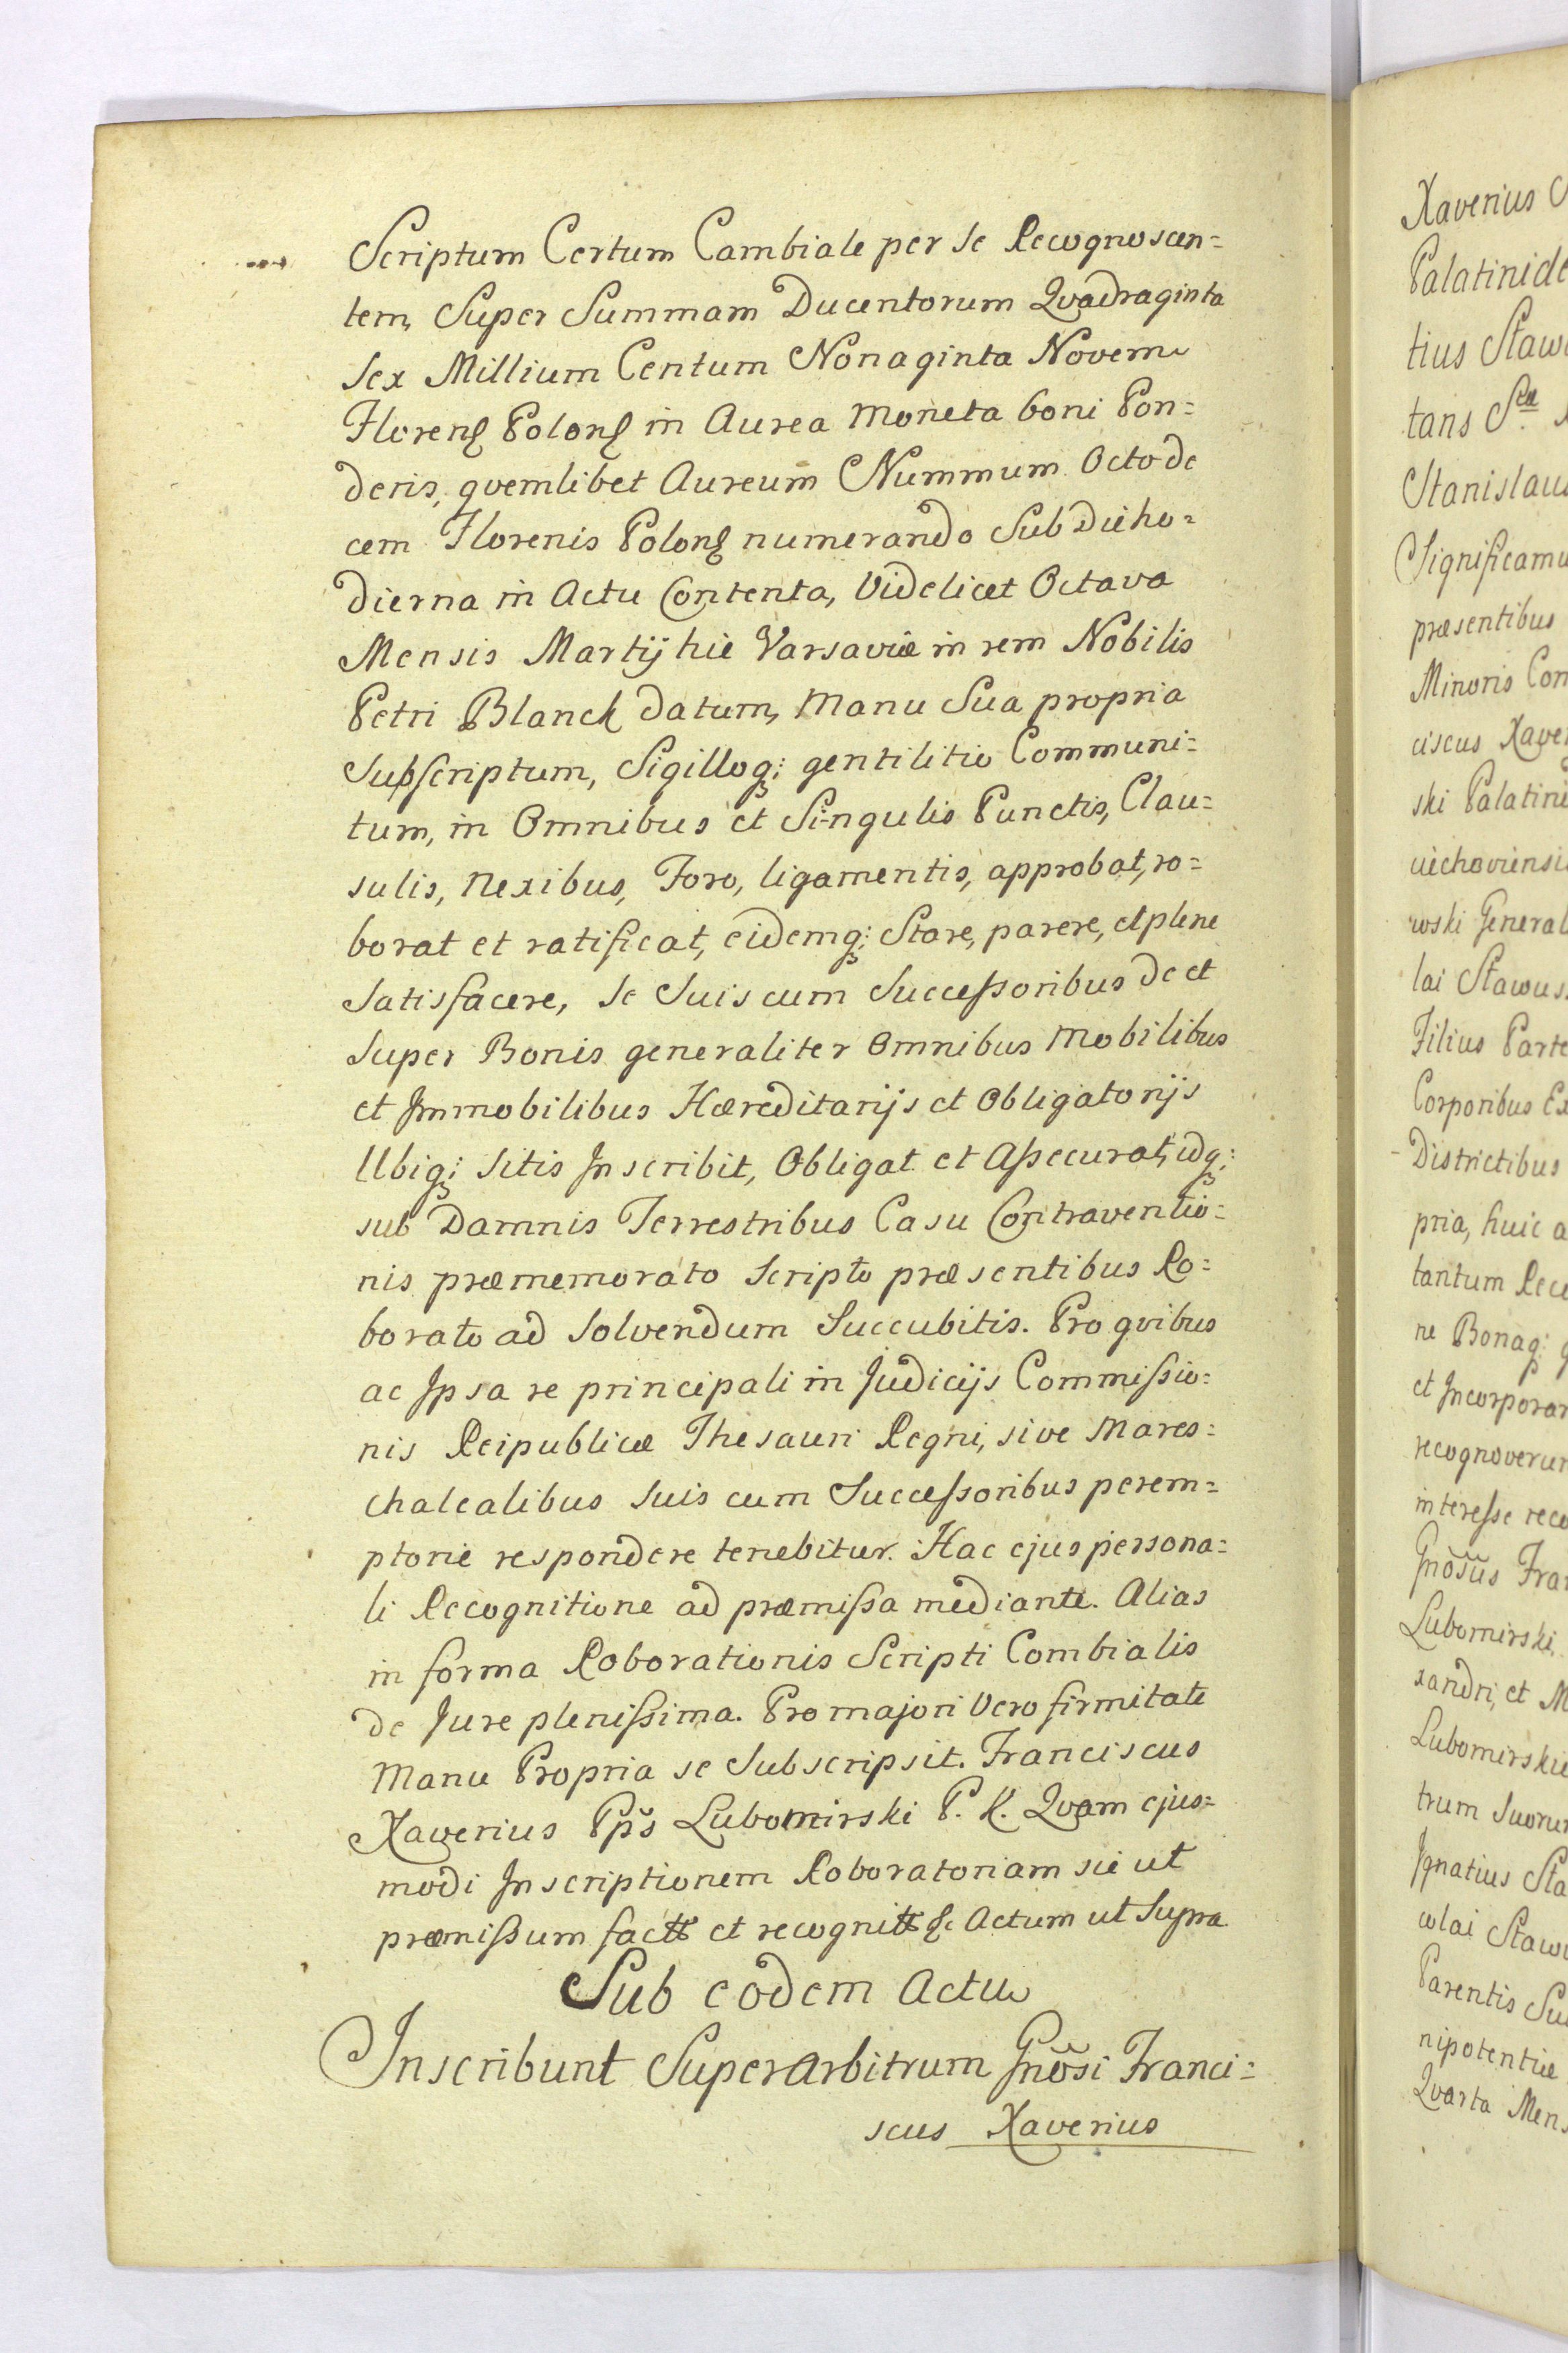 Scriptum Certum Cambiale per se Recognoscen=
tem, Super Summam Ducentorum Qvadraginta
sex Millium Centum Nonaginta Novem
Floren̄ Polon̄ in Aurea Moneta boni Pon=
deris, qvemlibet Aureum Nummum Octode
cem Florenis Polon̄ numerando Sub Die ho=
dierna in Actu Contenta, Videlicet Octava
Mensis Martij hic Varsaviæ in rem Nobilis
Petri Blanck datum, Manu Sua propria
Subscriptum, Sigilloq; gentilitio Communi=
tum, in Omnibus et Singulis Punctis, Clau=
sulis, Nexibus, Foro, ligamentis, approbat, ro=
borat et ratificat, eidemq; Stare, parere, et plene
Satisfacere, se Suis cum Successoribus de et
Super Bonis generaliter Omnibus Mobilibus
et Immobilibus Hæreditarijs et Obligatorijs
Ubiq; Sitis Inscribit, Obligat et Assecurat, idq;
sub Damnis Terrestribus Casu Contraventio=
nis præmemorato Scripto præsentibus Ro=
borato ad Solvendum Succubitis. Pro qvibus
ac Ipsa re principali in Judicijs Commissio=
nis Reipublicæ Thesauri Regni, sive Mares=
chalcalibus Suis cum Successoribus perem=
ptorie respondere tenebitur. Hac ejus persona=
li Recognitione ad præmissa mediante. Alias
in forma Roborationis Scripti Combialis
de Jure plenissima. Pro majori Vero firmitate
Manu Propria se Subscripsit. Franciscus
Xaverius Pp̃s Lubomirski P. K. Qvam ejus=
modi Inscriptionem Roboratoriam sic ut
præmissum est et recognit Actum ut Supra
Sub eodem Actu
Inscribunt Superarbitrum Gnõsi Franci=
scus Xaverius
Xaverius
Palatinide
tius Staw
tans
Stanislaus
Significamu
præsentibus
Minoris Con
ciscus Xaver
ski Palatini
ciechoviensi
wski General
lai Stawus
Filius Parte
Corporibus Ex
Districtibus
pria, huic a
tantum Rec
ne Bonaq;
et Incorporar
recognoverun
interesse reco
Gnõsus Fran
Lubomirski
xandri, et M
Lubomirskie
trum Suorum
Ignatius Sta
colai Staw
Parentis Su
nipotentiæ
Qvarta Mens